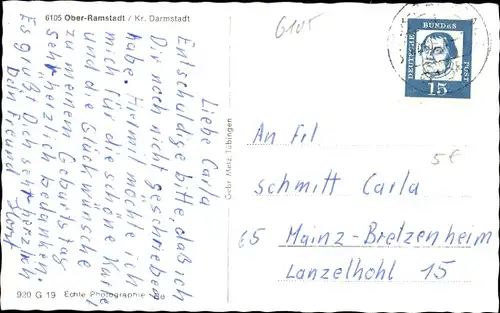 6105 Ober-Ramstadt / Kr. Darmstadt
6105
DEUTSCHE
BUNDES
POST
15
Liebe Carla
Entschuldige bitte, daß ich
Dir noch nicht geschrieben
habe. Hiermit möchte ich
mich für die schöne Karte
und die Glückwünsche
zu meinem Geburtstag
sehr herzlich bedanken.
Es grüßt Dich sehr herzlich
Dein Freund Horst
Gebr. Metz, Tübingen
An Frl
5€
Schmitt Carla
65 Mainz-Bretzenheim
Lanzelhohl 15
920 G 19 Echte Photographie